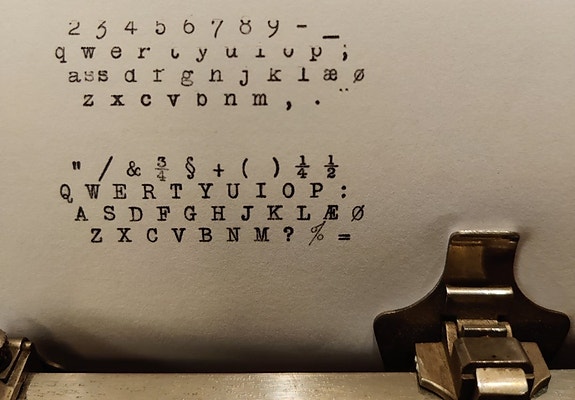 2 3 4 5 6 7 8 9 - _
q w e r t y u i o p ;
a s s d f g h j k l æ ø
z x c v b n m , . ¨
" / & ¾ § + ( ) ¼ ½
Q W E R T Y U I O P :
A S D F G H J K L Æ Ø
Z X C V B N M ? % =